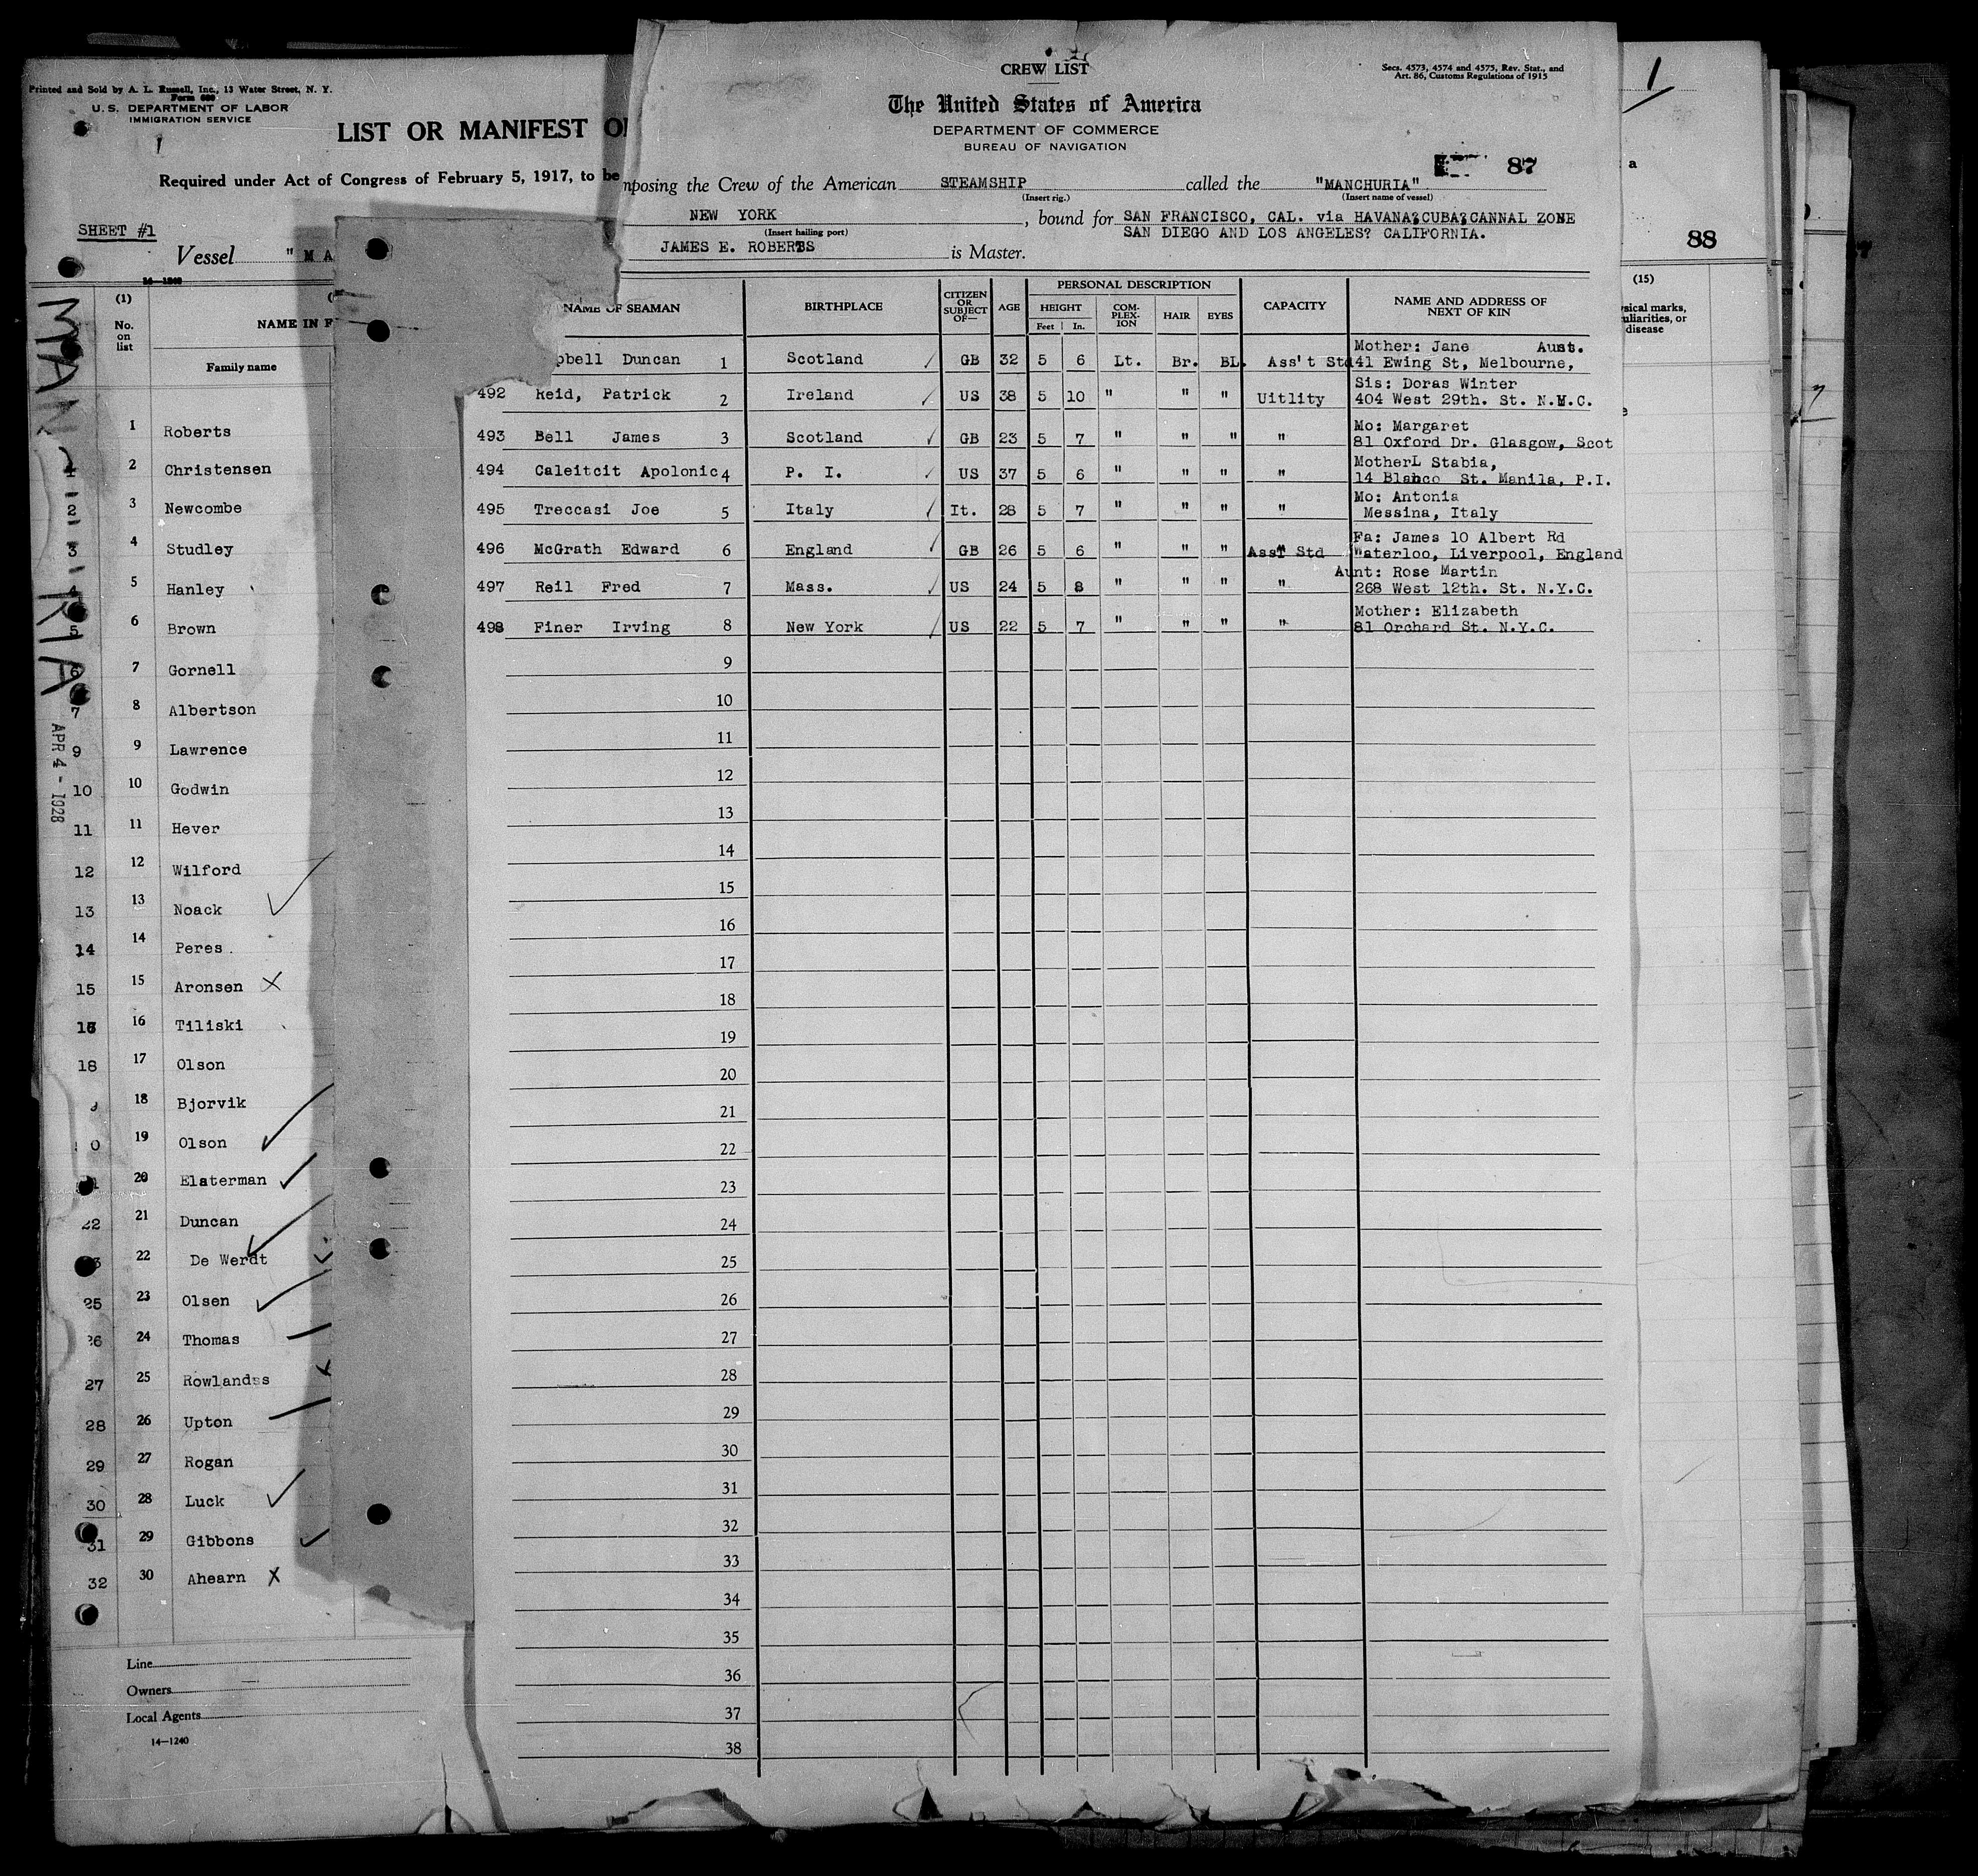 Printed and Sold by A. L. Russell, Inc., 13 Water Street, N. Y.
Form 680
U. S. DEPARTMENT OF LABOR
IMMIGRATION SERVICE
1
LIST OR MANIFEST O
Required under Act of Congress of February 5, 1917, to be
SHEET #1
Vessel "MA
14—1240
(1)
No. on list
NAME IN F
Family name
MAN
RIA
APR 4 - 1928
1 Roberts
1 2 Christensen
2 3 Newcombe
3 4 Studley
4 5 Hanley
5 6 Brown
6 7 Gornell
7 8 Albertson
9 9 Lawrence
10 10 Godwin
11 11 Hever
12 12 Wilford
13 13 Noack
14 14 Peres.
15 15 Aronsen X
16 Tiliski
18 17 Olson
18 Bjorvik
0 19 Olson
20 Elsterman
22 21 Duncan
22 De Werdt
25 23 Olsen
26 24 Thomas
27 25 Rowlandss
28 26 Upton
29 27 Rogan
30 28 Luck
31 29 Gibbons
32 30 Ahearn X
Line
Owners
Local Agents
14—1240
CREW LIST
Secs. 4573, 4574 and 4575, Rev. Stat., and
Art. 86, Customs Regulations of 1915
The United States of America
DEPARTMENT OF COMMERCE
BUREAU OF NAVIGATION
87
mposing the Crew of the American STEAMSHIP called the "MANCHURIA"
(Insert rig.) (Insert name of vessel)
NEW YORK , bound for SAN FRANCISCO, CAL. via HAVANA?CUBA?CANNAL ZONE
(Insert hailing port) SAN DIEGO AND LOS ANGELES? CALIFORNIA.
JAMES E. ROBERTS is Master.
NAME OF SEAMAN BIRTHPLACE CITIZEN OR SUBJECT OF— AGE PERSONAL DESCRIPTION HEIGHT Feet In. COM-PLEX-ION HAIR EYES CAPACITY NAME AND ADDRESS OF NEXT OF KIN
Mother: Jane Aust.
pbell Duncan 1 Scotland GB 32 5 6 Lt. Br. BL. Ass't Std 41 Ewing St, Melbourne,
Sis: Doras Winter
492 Reid, Patrick 2 Ireland US 38 5 10 " " " Uitlity 404 West 29th. St. N.M.C.
Mo: Margaret
493 Bell James 3 Scotland GB 23 5 7 " " " " 81 Oxford Dr. Glasgow, Scot
MotherL Stabia,
494 Caleitcit Apolonic 4 P. I. US 37 5 6 " " " " 14 Blanco St. Manila, P.I.
Mo: Antonia
495 Treccasi Joe 5 Italy It. 28 5 7 " " " " Messina, Italy
Fa: James 10 Albert Rd
496 McGrath Edward 6 England GB 26 5 6 " " " Asst Std Waterloo, Liverpool, England
Aunt: Rose Martin
497 Reil Fred 7 Mass. US 24 5 8 " " " " 268 West 12th. St. N.Y.C.
Mother: Elizabeth
498 Finer Irving 8 New York US 22 5 7 " " " " 81 Orchard St. N.Y.C.
9
10
11
12
13
14
15
16
17
18
19
20
21
22
23
24
25
26
27
28
29
30
31
32
33
34
35
36
37
38
1
a
88
(15)
sical marks,
uliarities, or
disease
e